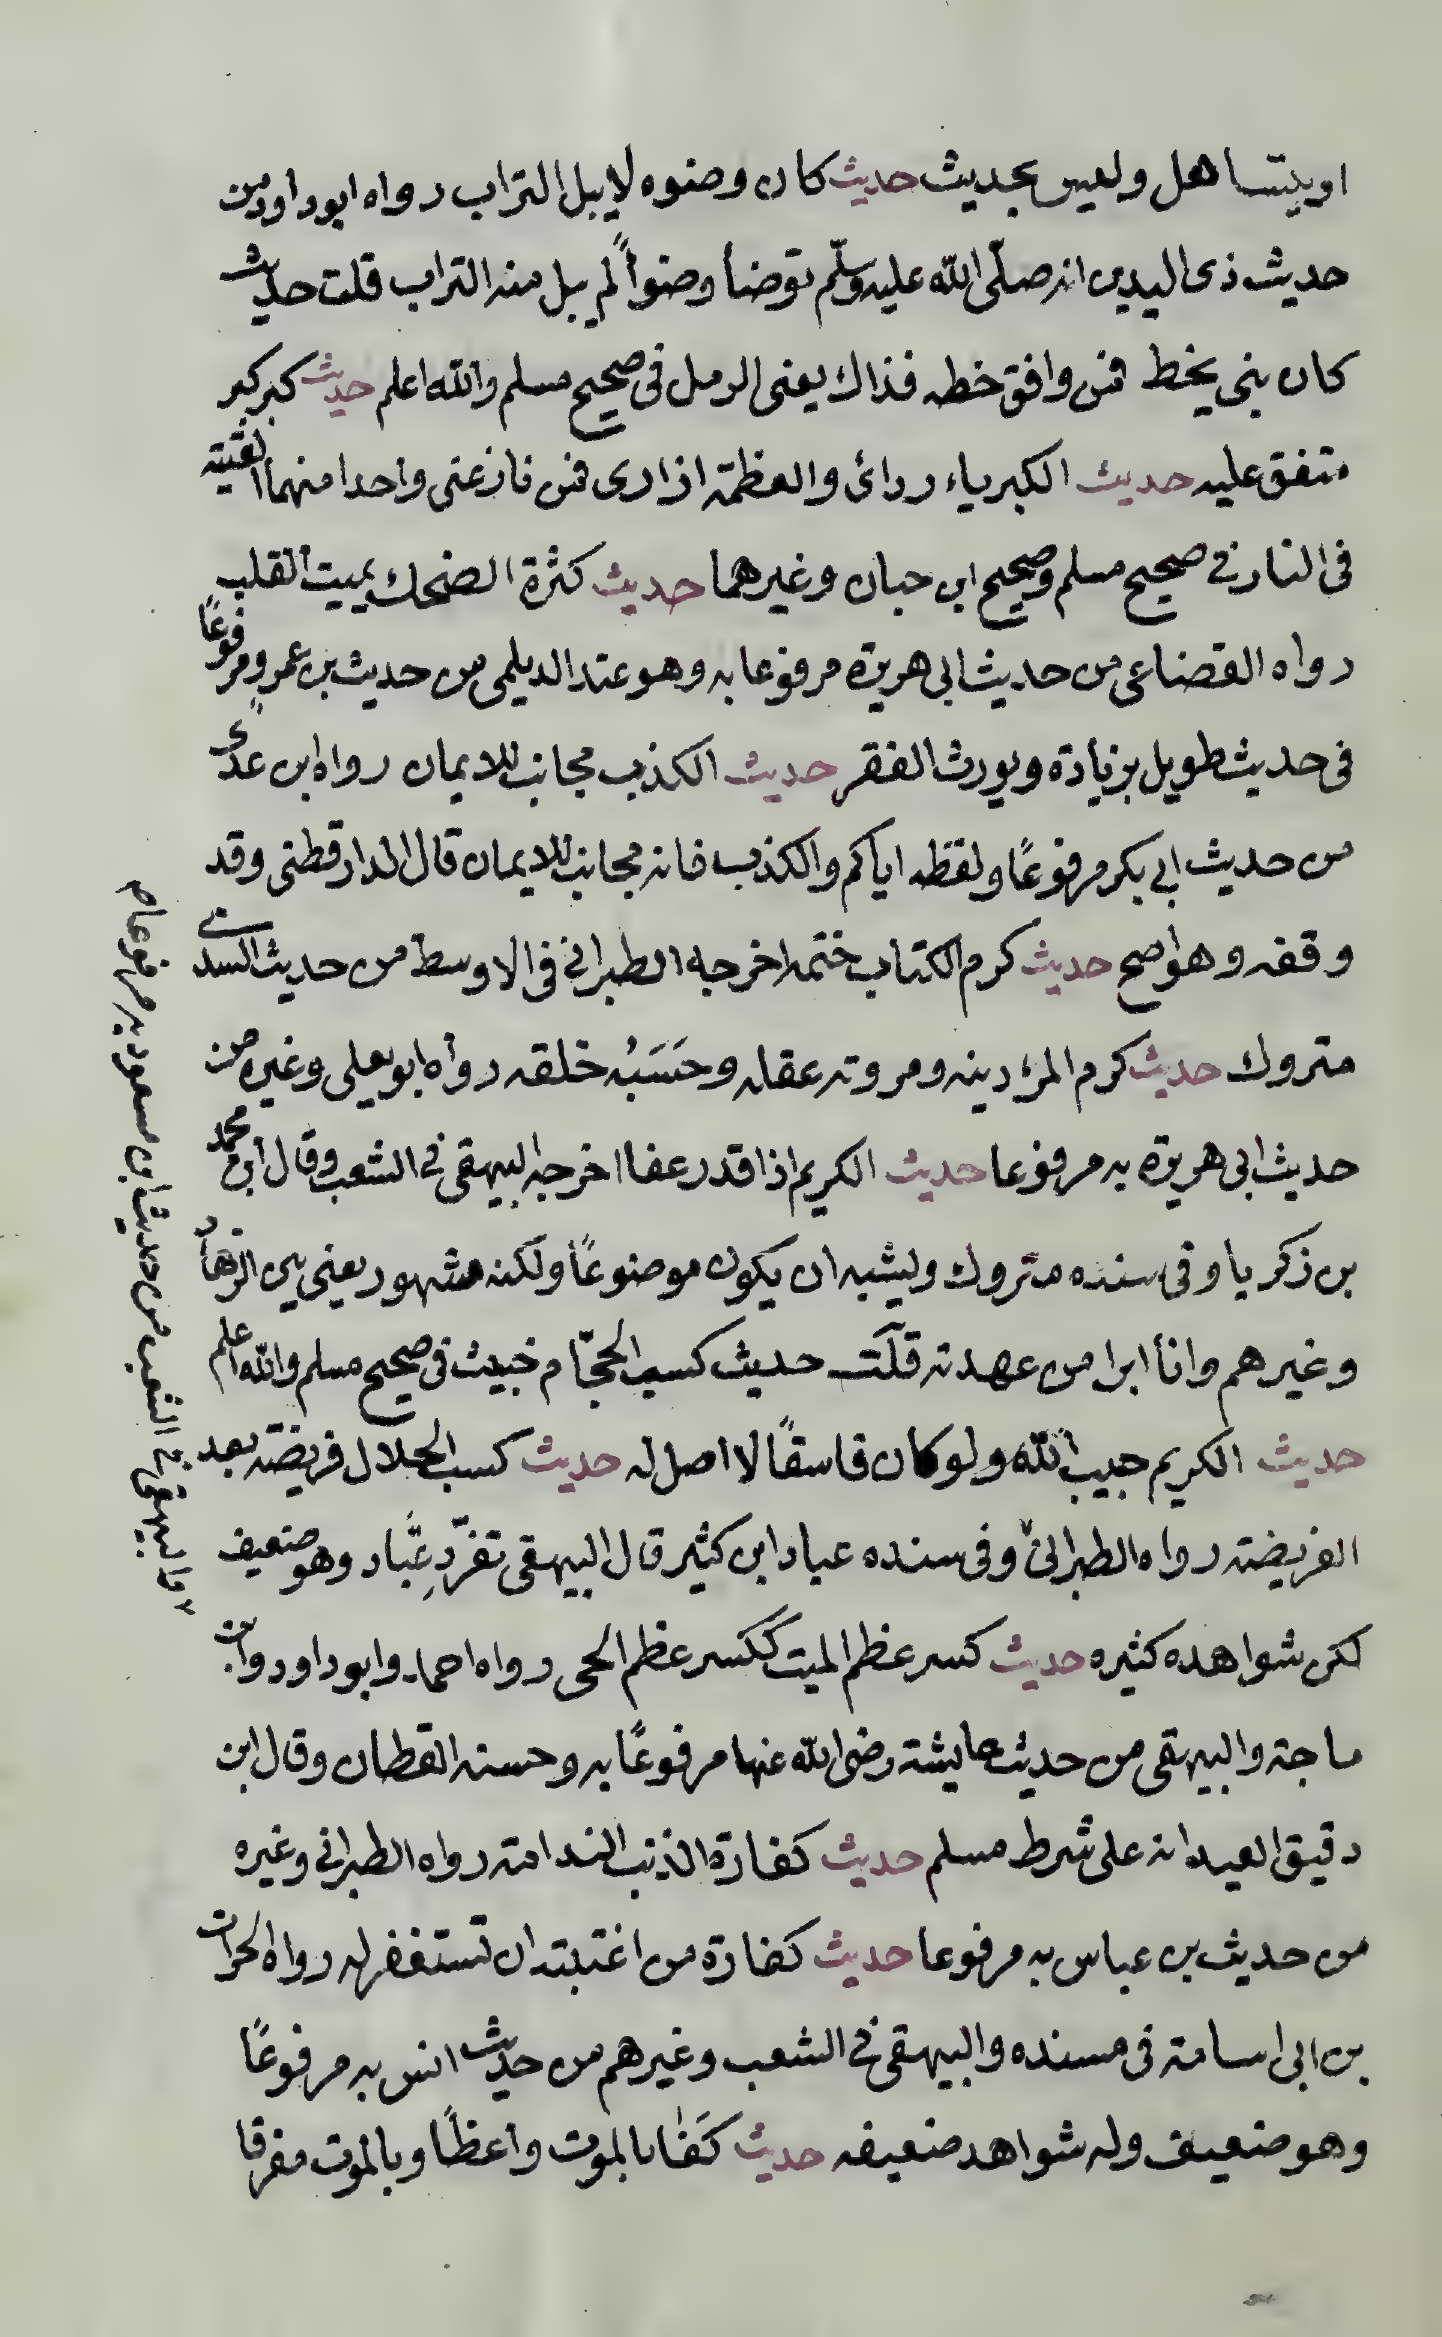 او يتساهل وليس بحديث حديث كان وضوه لا يبل التراب رواه ابو داود من
حديث ذى اليدين انه صلّى الله عليه وسلّم توضأ وضوأً لم يبل منه التراب قلت حديث
كان نبى يخط فمن وافق خطه فذاك يعنى الرمل فى صحيح مسلم والله اعلم حديث كبر كبر
متفق عليه حديث الكبرياء ردائ والعظمة ازارى فمن نازعنى واحدا منهما القيته
فى النار فى صحيح مسلم وصحيح ابن حبان وغيرهما حديث كثرة الضحك يميت القلب
رواه القضاعى من حديث ابى هريرة مرفوعا به وهو عند الديلمى من حديث بن عمرو مرفوعًا
فى حديث طويل بزيادة ويورث الفقر حديث الكذب مجانب للايمان رواه ابن عدى
من حديث ابى بكر مرفوعًا ولفظه اياكم والكذب فانه مجانب للايمان قال الدارقطنى وقد
وقفه وهو اصح حديث كرم الكتاب ختمه اخرجه الطبرانى فى الاوسط من حديث السدى
متروك حديث كرم المرء دينه ومروته عقله وحَسَبُه خلقه رواه ابو يعلى وغيره من
حديث ابى هريرة به مرفوعا حديث الكريم اذا قدر عفا اخرجه البيهقى فى الشعب وقال ابن محمد
بن زكريا وفى سنده متروك ويشبه ان يكون موضوعًا ولكنه مشهور يعنى بين الزهاد
وغيرهم وانا ابرا من عهدته قلت حديث كسب الحجّام خبيث فى صحيح مسلم والله اعلم
حديث الكريم حبيب الله ولو كان فاسقًا لا اصل له حديث كسب الحلال فريضة بعد
الفريضة رواه الطبرانى وفى سنده عباد ابن كثير قال البيهقى تفرّد عبّاد وهو ضعيف
لكن شواهده كثيره حديث كسر عظم الميت ككسر عظم الحى رواه احمد وابو داود وابن
ماجة والبيهقى من حديث عايشة رضى الله عنها مرفوعًا به وحسنه القطان وقال ابن
دقيق العيد انه على شرط مسلم حديث كفارة الذنب الندامة رواه الطبرانى وغيره
من حديث بن عباس به مرفوعا حديث كفارة من اغتبته ان تستغفر له رواه الحرات
بن ابى اسامة فى مسنده والبيهقى فى الشعب وغيرهم من حديث انس به مرفوعًا
وهو ضعيف وله شواهد ضعيفه حديث كَفٰى بالموت واعظًا وبالموت مفرقا
٢ والبيهقى فى الشعب من حديث ابن مسعود به مرفوعا صح